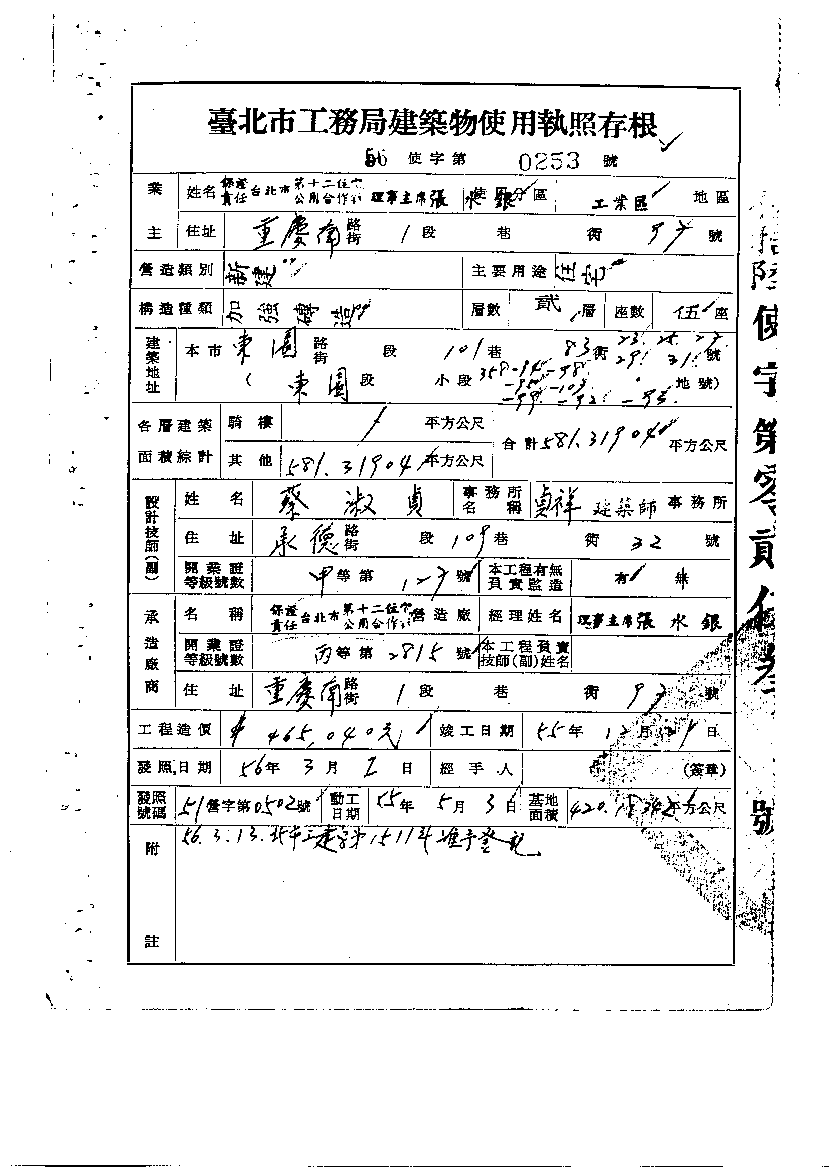 臺北市工務局建築物使用執照存根
56 使字第 0253 號
業主 姓名 保證責任台北市第十二住宅公用合作社 理事主席張水銀 使用分區 工業區 地區
住址 重慶南路街 1 段 巷 街 97 號
營造類別 新建 主要用途 住宅
構造種類 加強磚造 層數 貳 層 座數 伍 座
建築地址 本市 東園 路街 段 101 巷 83 街 23. 25. 27 29. 31. 號
( 東園 段 小段 358-94 地號)
各層建築面積綜計 騎樓 平方公尺 合計 581.31904 平方公尺
其他 581.31904 平方公尺
設計技師(副) 姓名 蔡淑貞 事務所名稱 貞祥建築師 事務所
住址 承德路街 段 109 巷 街 32 號
開業證等級號數 甲等第 127 號 本工程有無負實監造 有 無
承造廠商 名稱 保證責任台北市第十二住宅公用合作社 營造廠 經理姓名 理事主席張水銀
開業證等級號數 丙等第 2815 號 本工程負實技師(副)姓名
住址 重慶南路街 1 段 巷 街 97 號
工程造價 465,040元 竣工日期 55年 12月 日
發照日期 56年 3月 2日 經手人 (簽章)
發照號碼 51營字第0502號 動工日期 55年 5月 3日 基地面積 420. 平方公尺
附註 56.3.13.北市工建字第15114 准予登記
陸使字第零貳伍叁號